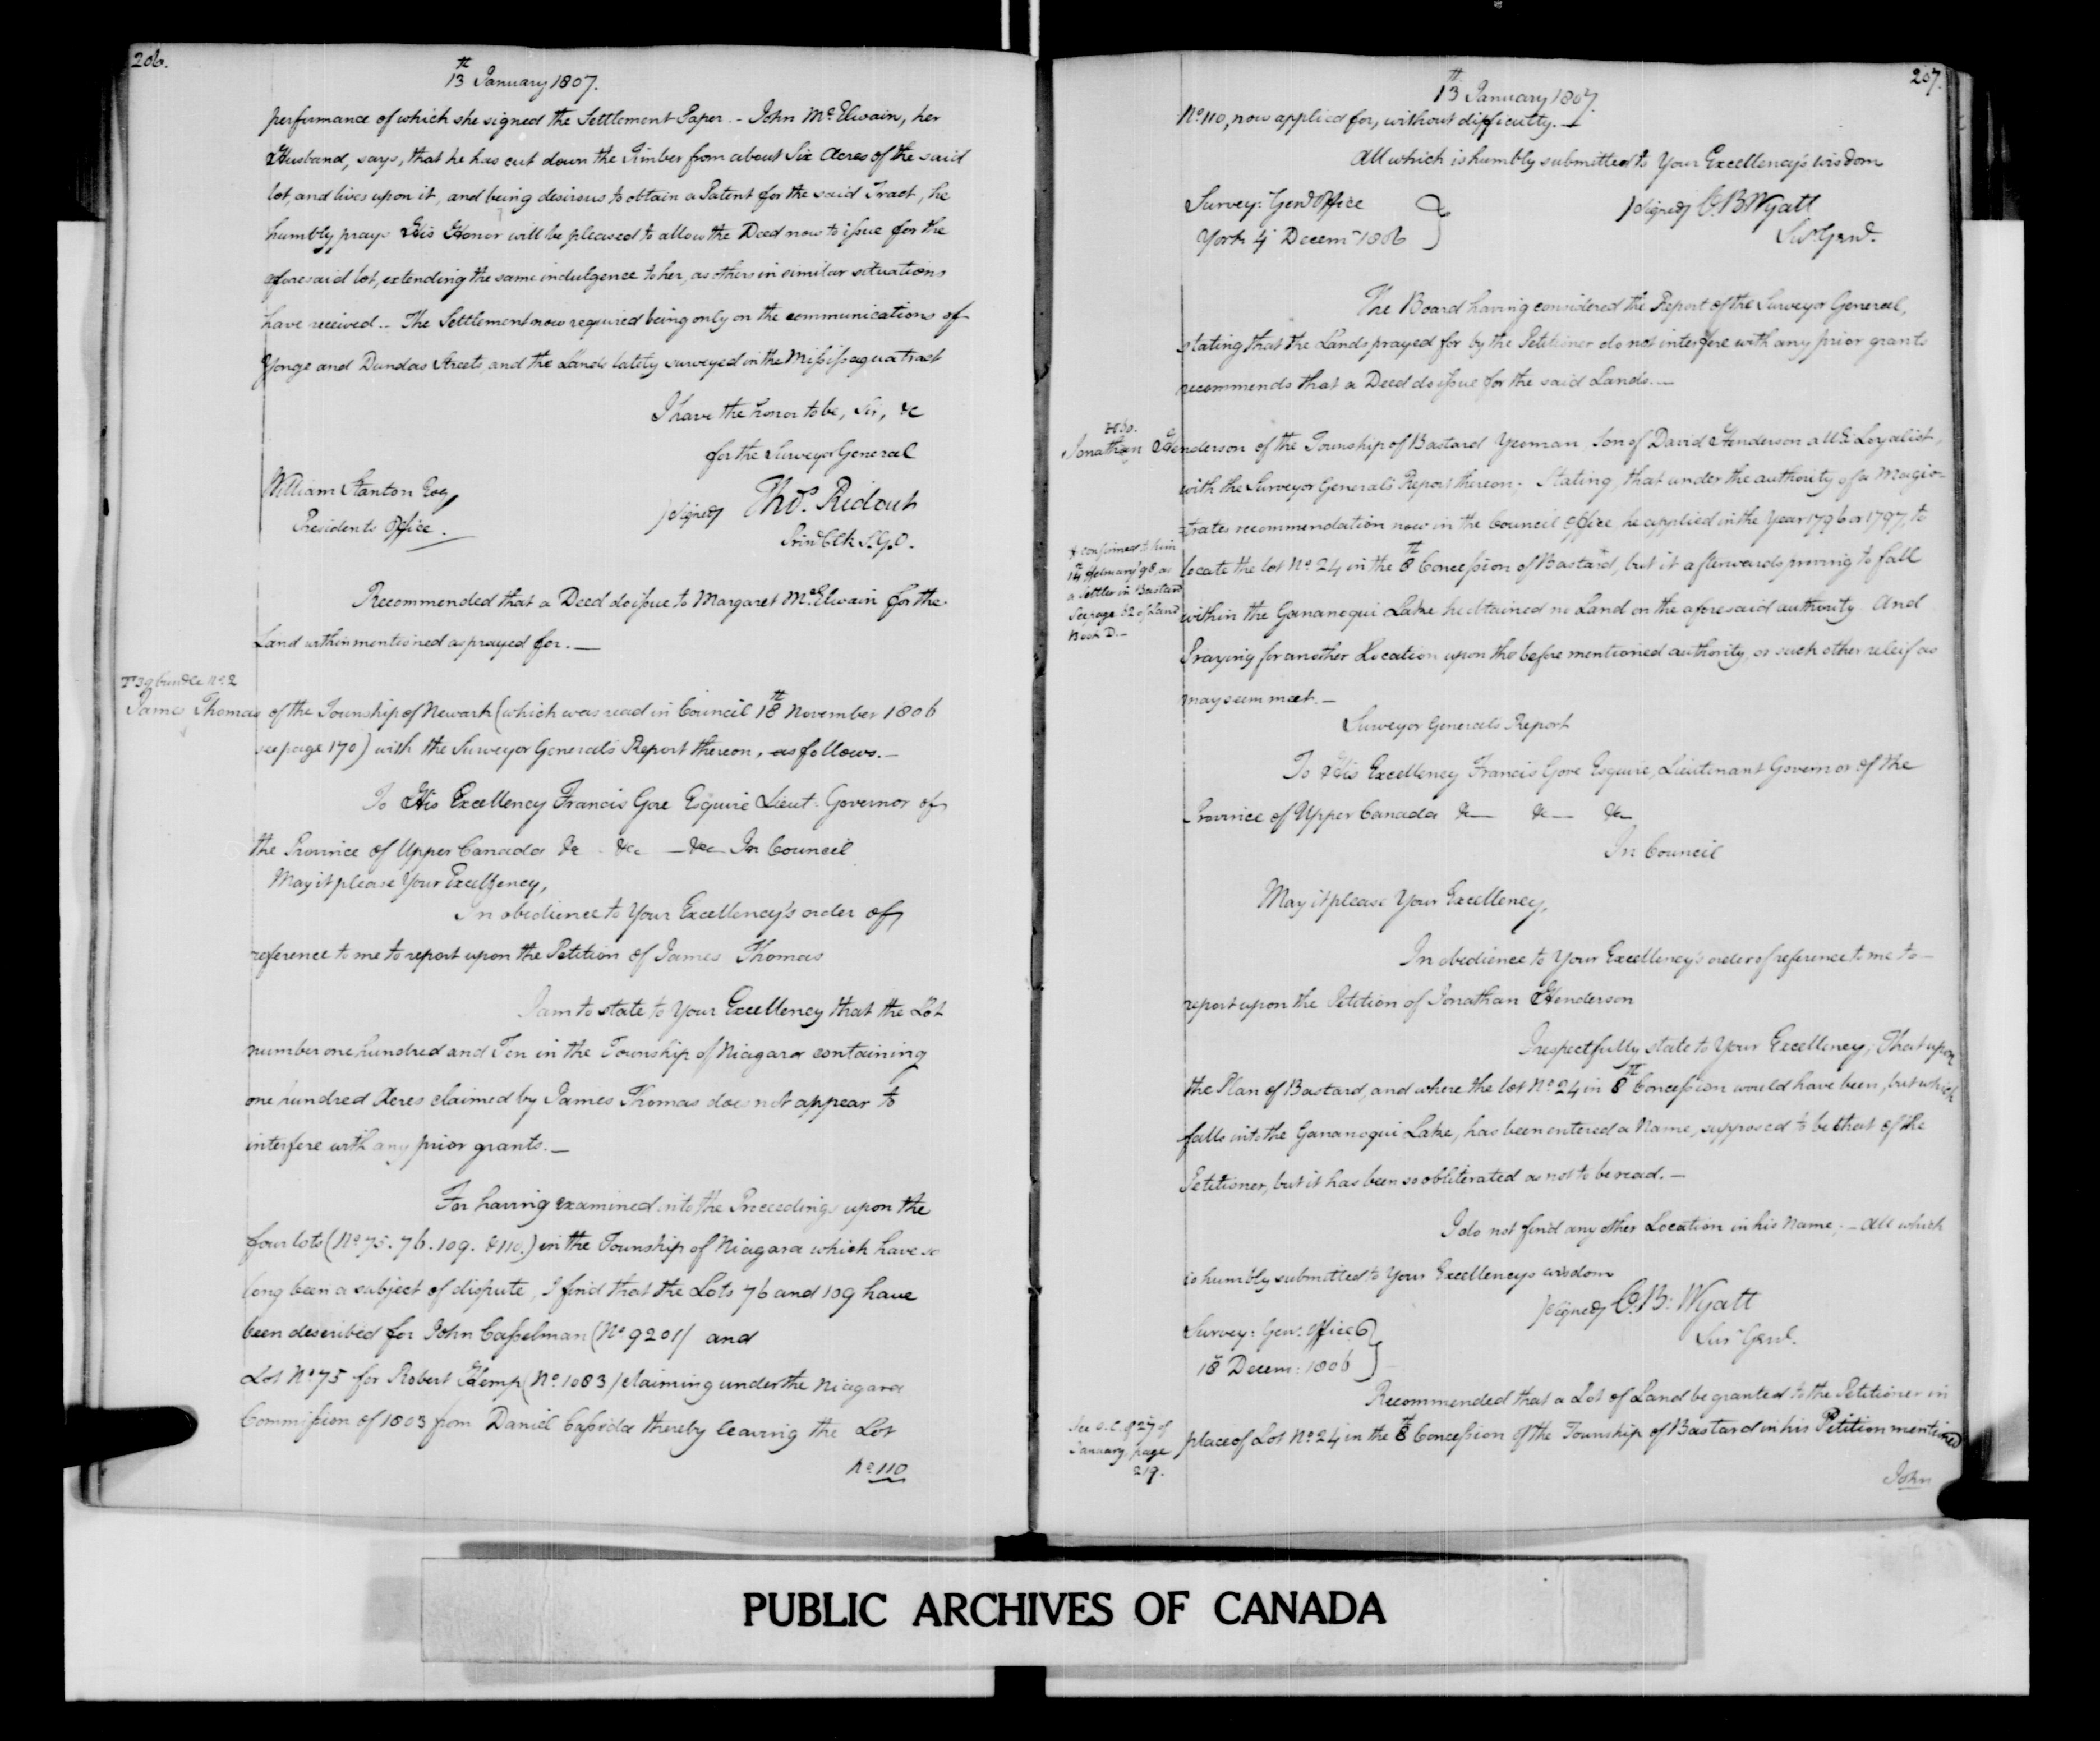 206.
13th January 1807.
performance of which she signed the Settlement Paper. - John McElwain, her
Husband, says, that he has cut down the Timber from about Six Acres of the said
lot, and lives upon it, and being desirous to obtain a Patent for the said Tract, he
humbly prays His Honor will be pleased to allow the Deed now to issue for the
aforesaid lot, extending the same indulgence to her, as others in similar situations
have received. - The Settlement now required being only on the communications of
Yonge and Dundas Streets, and the Lands lately surveyed in the Missisagua tract
I have the honor to be, Sir, &c
for the Surveyor General
William Stanton Esqr
signed Thos. Ridout
Presidents Office.
Srnr Clk S.G.O.
Recommended that a Deed do issue to Margaret McElwain for the
Land within mentioned as prayed for. —
T 39 bundle No. 2
James Thomas of the Township of Newark (which was read in Council 18th November 1806
see page 170) with the Surveyor General's Report thereon, as follows. —
To His Excellency Francis Gore Esquire Lieut. Governor of
the Province of Upper Canada &c &c — &c In Council
May it please Your Excellency,
In obedience to Your Excellency's order of
reference to me to report upon the Petition of James Thomas
I am to state to Your Excellency that the Lot
number one hundred and Ten in the Township of Niagara containing
one hundred Acres claimed by James Thomas does not appear to
interfere with any prior grants. —
For having examined into the Proceedings upon the
four lots (No. 75. 76. 109. & 110.) in the Township of Niagara which have so
long been a subject of dispute, I find that the Lots 76 and 109 have
been described for John Casselman (No. 9201) and
Lot No. 75 for Robert Kemp (No. 1083) claiming under the Niagara
Commission of 1803 from Daniel Cassida thereby leaving the Lot
No. 110
207.
13th January 1807.
No. 110, now applied for, without difficulty. —
All which is humbly submitted to Your Excellency's wisdom
Survey: Genl Office
signed C. B Wyatt
York 4 Decemr 1806
Surr Genl.
The Board having considered the Report of the Surveyor General,
stating that the Lands prayed for by the Petitioner do not interfere with any prior grants
recommends that a Deed do issue for the said Lands. —
H 30.
Jonathan Henderson of the Township of Bastard Yeoman, Son of David Henderson a U.E. Loyalist,
with the Surveyor General's Report thereon; Stating, that under the authority of a Magis-
-trates recommendation now in the Council Office, he applied in the Year 1796 or 1797, to
locate the lot No. 24 in the 8th Concession of Bastard, but it afterwards proving to fall
within the Gananoqui Lake he obtained no Land on the aforesaid authority. And
Praying for another Location upon the before mentioned authority, or such other releif as
may seem meet. —
& confirmed to him
14th February 98, as
a Settler in Bastard
See page 52 of Land
Book D. —
Surveyor Generals Report
To His Excellency Francis Gore Esquire, Lieutenant Governor of the
Province of Upper Canada &c — &c — &c —
In Council
May it please Your Excellency,
In obedience to Your Excellency's order of reference to me to —
report upon the Petition of Jonathan Henderson
I respectfully state to Your Excellency, That upon
the Plan of Bastard, and where the lot No. 24 in 8th Concession would have been, but which
falls into the Gananoqui Lake, has been entered a Name, supposed to be that of the
Petitioner, but it has been so obliterated as not to be read. —
I do not find any other Location in his Name; — All which
is humbly submitted to Your Excellencys wisdom
signed C. B: Wyatt
Survey: Genl. Office
Surr Genl.
18 Decem: 1806
Recommended that a Lot of Land be granted to the Petitioner in
place of Lot No. 24 in the 8th Concession of the Township of Bastard in his Petition mentioned
See O.C. of 27 of
January page
219.
John
PUBLIC ARCHIVES OF CANADA